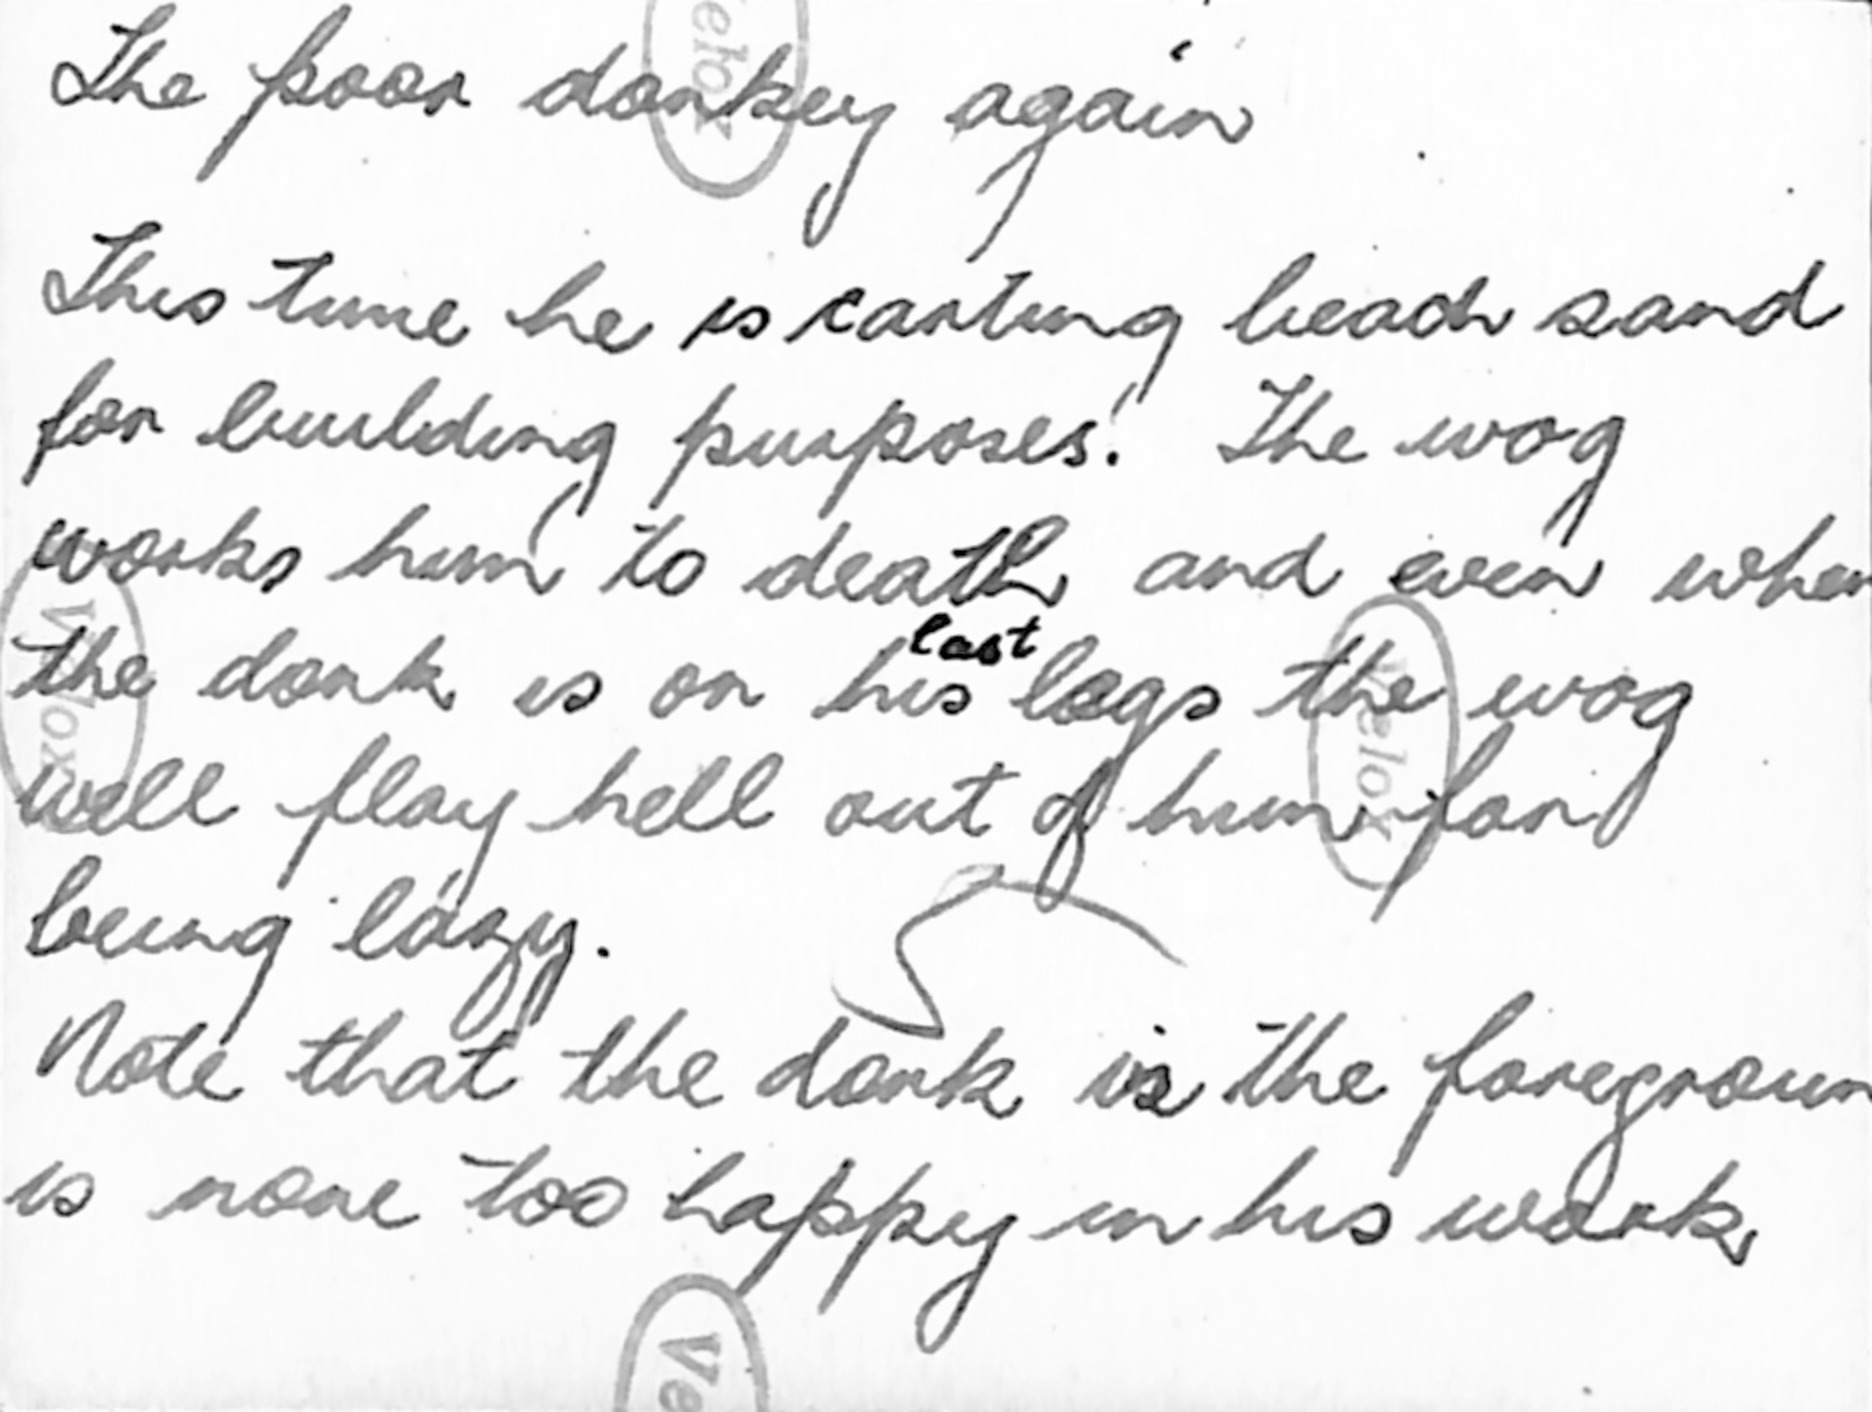 The poor donkey again
This time he is carting beach sand
for building purposes. The wog
works him to death and even when
the donk is on his last legs the wog
will flay hell out of him for
being lazy.
Note that the donk in the foregroun
is none too happy in his work
Velox
Velox
Velox
Ve